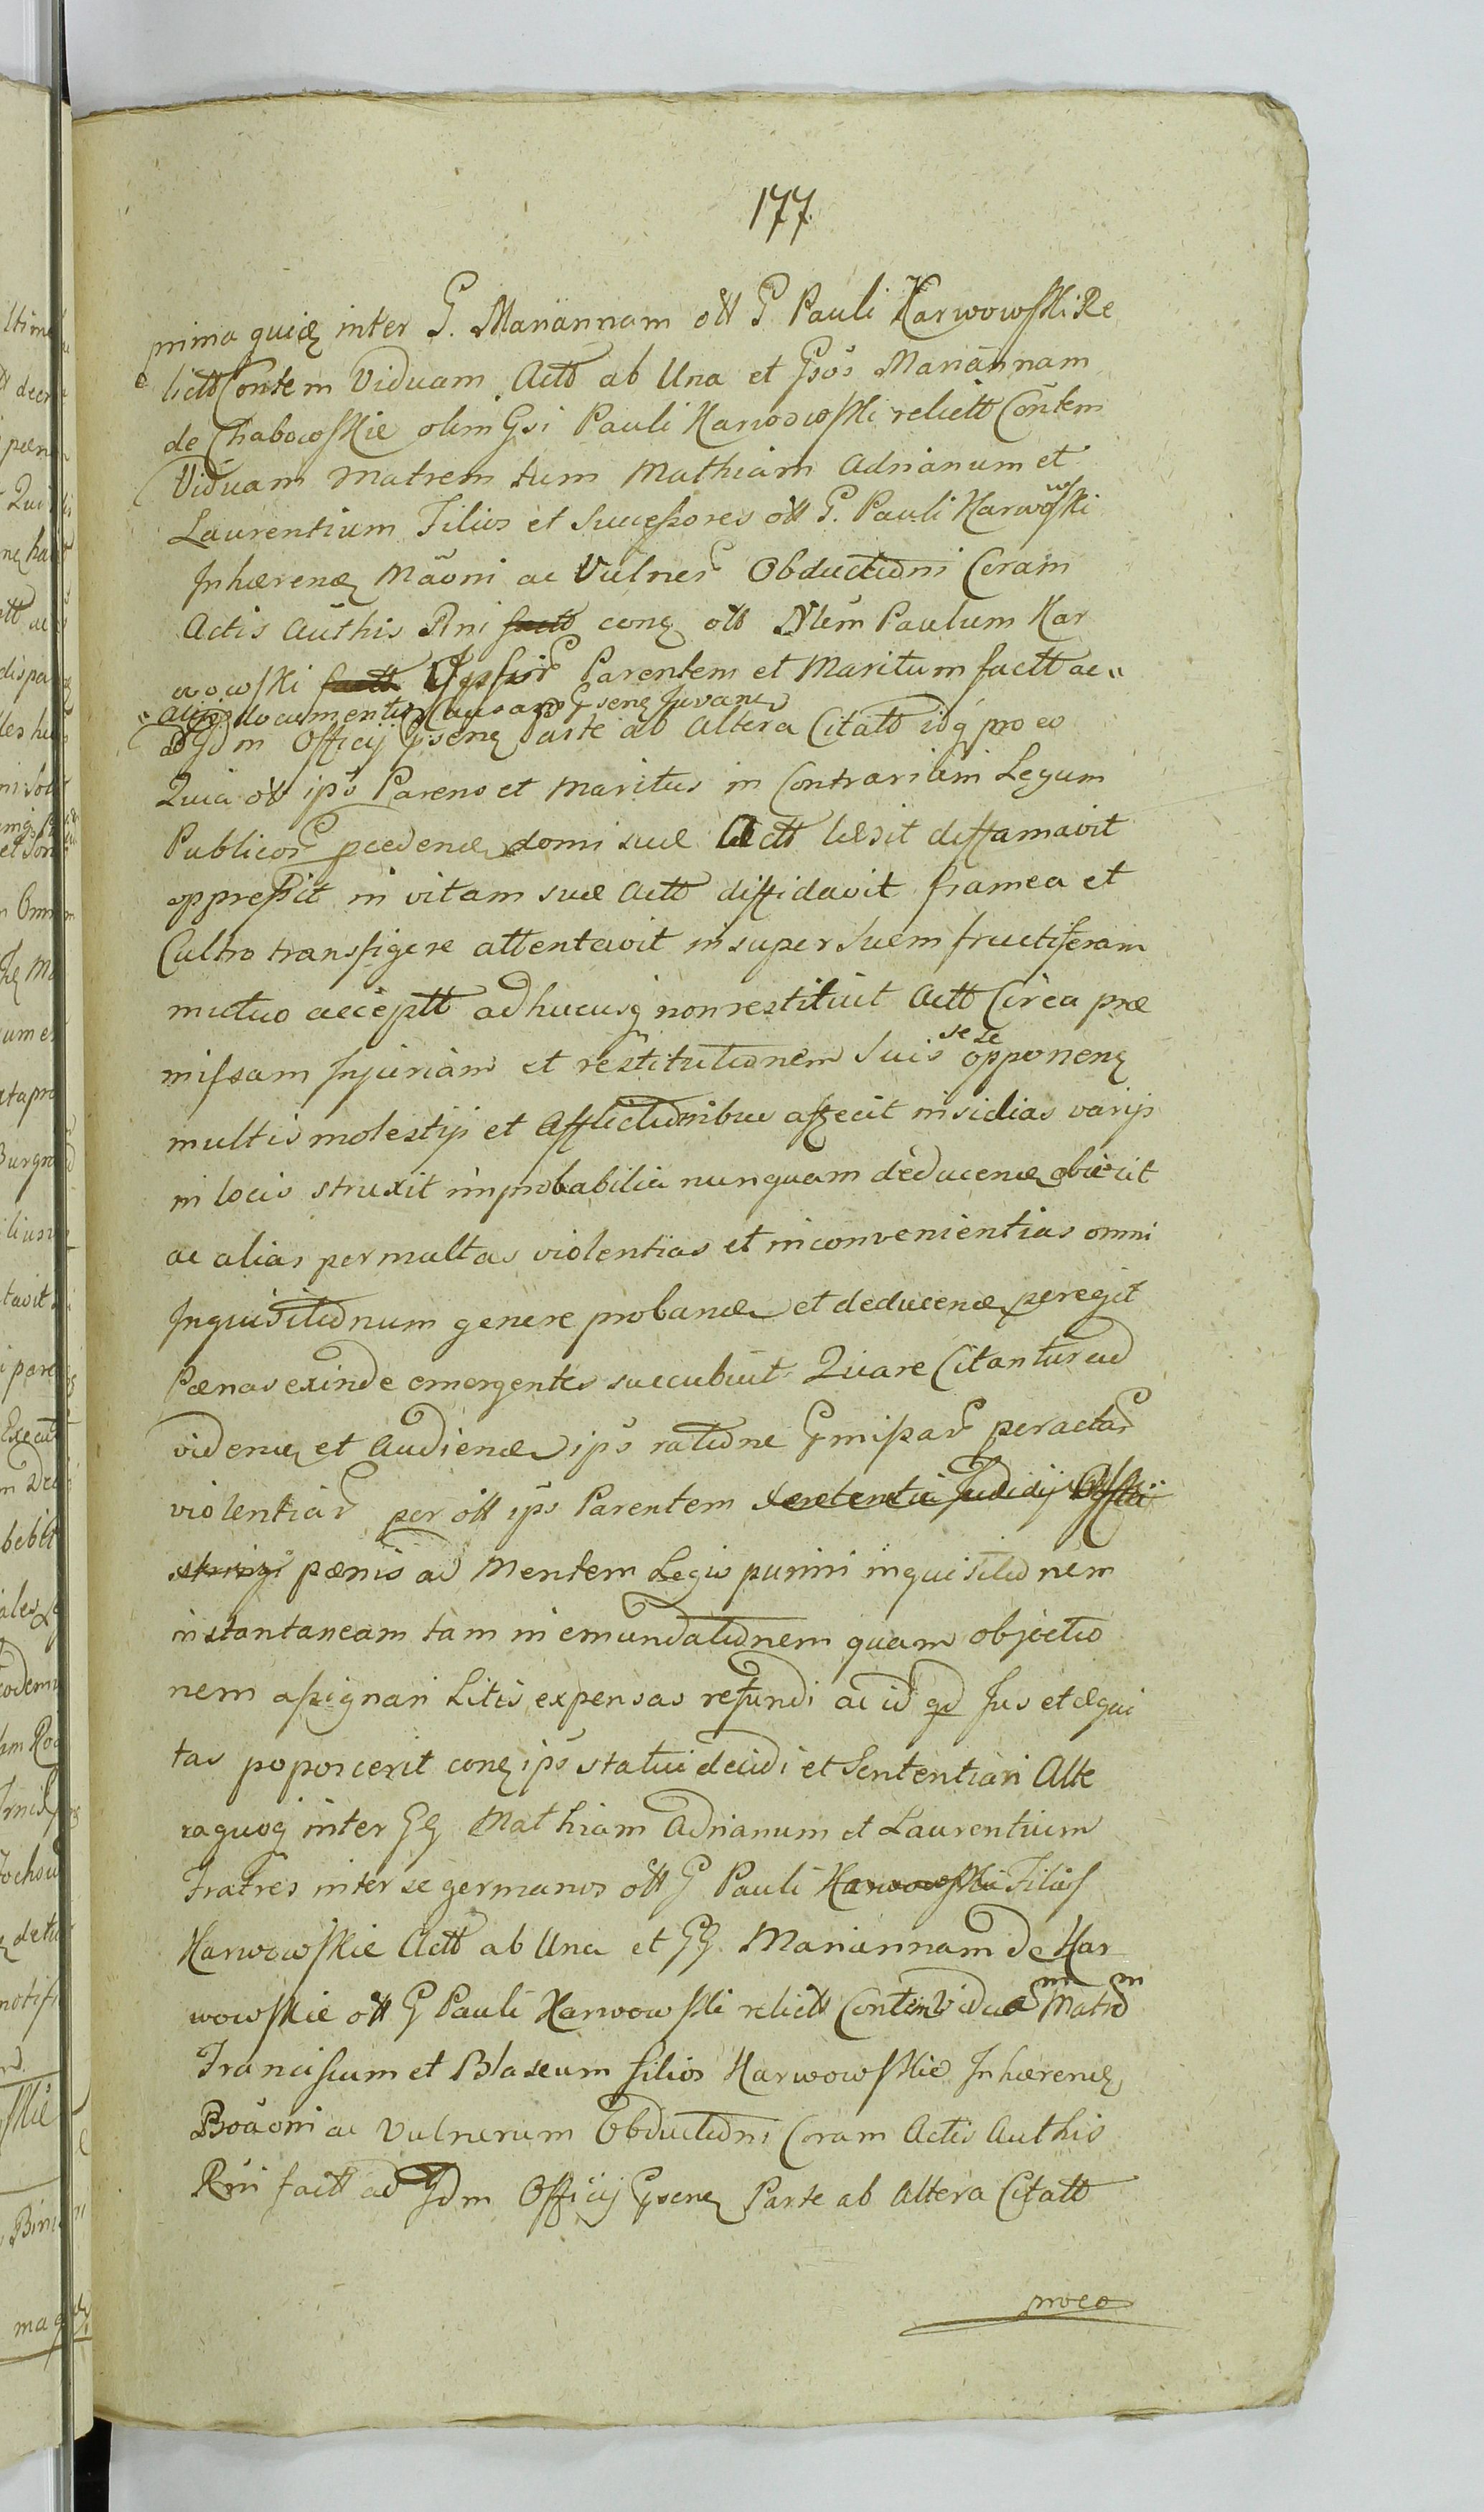 177
prima quidę inter G. Mariannam ott G Pauli Karwowski Re
lictt Contem Viduam Actt ab Una et Gsos Mariannam
de Chabowskie olim Gsi Pauli Karwowski relictt Contem
Viduam Matrem tum Mathiam Adrianum et
Laurentium Filios et Successores ott G. Pauli Karwowski
Inhærendę Mãoni ac Vulner Obductioni Coram
Actis Authis Rni factt conę ott Nlem Paulum Kar
wowski factt Ipsor Parentem et Maritum factt ac
alijs documentis Causam Psenę Juvanę
ad Idm Officij Psenę Parte ab Altera Citatt idq pro eo
Quia ott ips Parens et Maritus in Contrarium Legum
Publicor procedendę domi suæ Actt læsit diffamavit
oppressit in vitam suæ Actt diffidavit framea et
Cultro transfigere attentavit insuper Suem fructiferam
mutuo acceptt adhucusq non restituit Actt Circa præ
missam Injuriam et restitutionem Suis sese opponenę
multis molestijs et Afflictionibus affecit insidias varijs
in locis struxit improbabilia nunquam deducendę obiecit
ac alias permultas violentias et inconvenientias omni
Inquisitionum genere probandę et deducendę peregit
Pœnas exinde emergentes succubuit Quare Citantur ad
videndę et Audiendę ips ratione Pmissar peractar
violentiar per ott ips Parentem Judicij
pœnis ad Mentem Legis puniri inquisitionem
instantaneam tam in emundationem quam objectio
nem assignari Litis expensas refundi ac id qd Jus et æqui
tas poposcerit conę ips statui decidi et Sententiari Alte
raquoq inter GG Mathiam Adrianum et Laurentium
Fratres inter se germanos ott G Pauli Karwowski Filios
Karwowskie Actt ab Una et GG. Mariannam de Kar
wowskie ott G Pauli Karwowski relictt Contem Viduam Matrem
Franciscum et Blaseum filios Karwowskie Inhærendę
Proãoni ac Vulnerum Obductioni Coram Actis Authis
Rni factt ad Idm Officij Psenę Parte ab Altera Citatt
pro eo